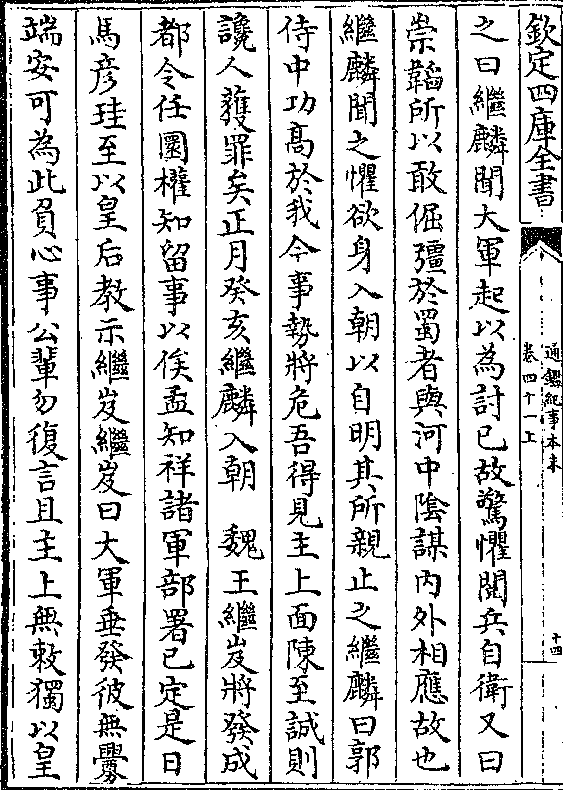 欽定四庫全書
通鑑紀事本末
卷四十一上
十四
之曰繼麟聞大軍起以為討已故驚懼閱兵自衛又曰
崇韜所以敢倔彊於蜀者與河中陰謀内外相應故也
繼麟聞之懼欲身入朝以自明其所親止之繼麟曰郭
侍中功髙於我今事勢將危吾得見主上面陳至誠則
讒人獲罪矣正月癸亥繼麟入朝　魏王繼岌將發成
都令任圜權知留事以俟孟知祥諸軍部署已定是日
馬彦珪至以皇后教示繼岌繼岌曰大軍垂發彼無釁
端安可為此負心事公輩勿復言且主上無敕獨以皇